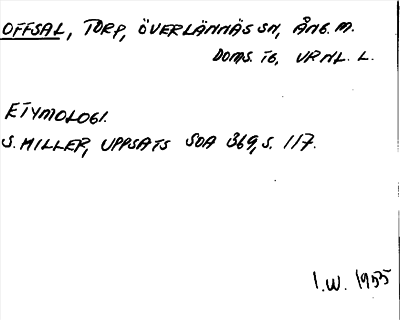 OFFSAL, TORP, ÖVERLÄNNÄS SN, ÅNG. M.
DOMS. TG, VRNL. L.
ETYMOLOGI.
S. MILLER, UPPSATS SOA 369, S. 117.
I.W. 1955